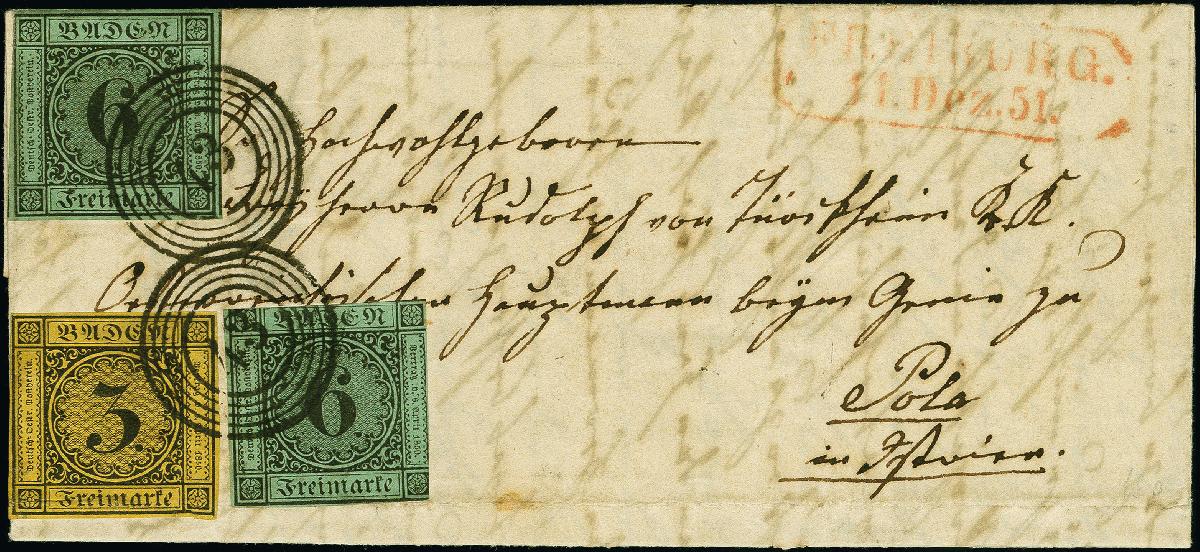 BADEN
6
Freimarke
FREIBURG.
11. Dez. 51.
Hochwohlgeboren
Herrn Rudolph von Türckheim K.K.
Oesterreichischer Hauptmann beym Genie zu
Pola
in Istrien.
BADEN
3
Freimarke
BADEN
6
Freimarke